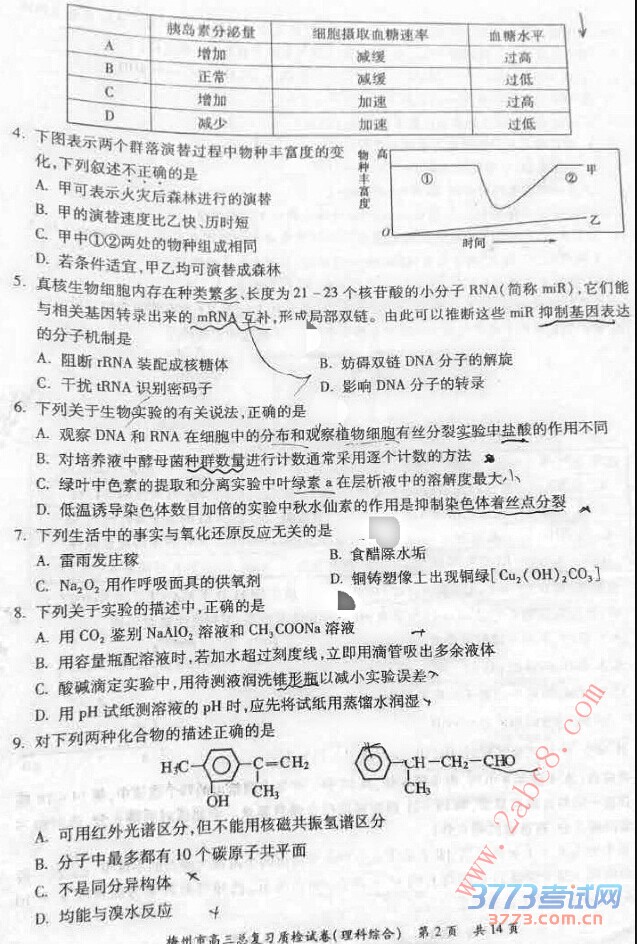 胰岛素分泌量 细胞摄取血糖速率 血糖水平
A 增加 减缓 过高
B 正常 减缓 过低
C 增加 加速 过高
D 减少 加速 过低
4. 下图表示两个群落演替过程中物种丰富度的变
化,下列叙述不正确的是
A. 甲可表示火灾后森林进行的演替
B. 甲的演替速度比乙快、历时短
C. 甲中①②两处的物种组成相同
D. 若条件适宜,甲乙均可演替成森林
物种丰富度
高
①
②
甲
乙
O
时间
5. 真核生物细胞内存在种类繁多、长度为21-23个核苷酸的小分子RNA(简称miR),它们能
与相关基因转录出来的mRNA互补,形成局部双链。由此可以推断这些miR抑制基因表达
的分子机制是
A. 阻断rRNA装配成核糖体 B. 妨碍双链DNA分子的解旋
C. 干扰tRNA识别密码子 D. 影响DNA分子的转录
6. 下列关于生物实验的有关说法,正确的是
A. 观察DNA和RNA在细胞中的分布和观察植物细胞有丝分裂实验中盐酸的作用不同
B. 对培养液中酵母菌种群数量进行计数通常采用逐个计数的方法
C. 绿叶中色素的提取和分离实验中叶绿素a在层析液中的溶解度最大
D. 低温诱导染色体数目加倍的实验中秋水仙素的作用是抑制染色体着丝点分裂
7. 下列生活中的事实与氧化还原反应无关的是
A. 雷雨发庄稼 B. 食醋除水垢
C. Na₂O₂用作呼吸面具的供氧剂 D. 铜铸塑像上出现铜绿[Cu₂(OH)₂CO₃]
8. 下列关于实验的描述中,正确的是
A. 用CO₂鉴别NaAlO₂溶液和CH₃COONa溶液
B. 用容量瓶配溶液时,若加水超过刻度线,立即用滴管吸出多余液体
C. 酸碱滴定实验中,用待测液润洗锥形瓶以减小实验误差
D. 用pH试纸测溶液的pH时,应先将试纸用蒸馏水润湿
9. 对下列两种化合物的描述正确的是
H₃C C=CH₂ CH-CH₂-CHO
OH CH₃ CH₃
A. 可用红外光谱区分,但不能用核磁共振氢谱区分
B. 分子中最多都有10个碳原子共平面
C. 不是同分异构体
D. 均能与溴水反应
梅州市高三总复习质检试卷(理科综合) 第2页 共14页
www.2abc8.com
3773考试网
www.3773.com.cn